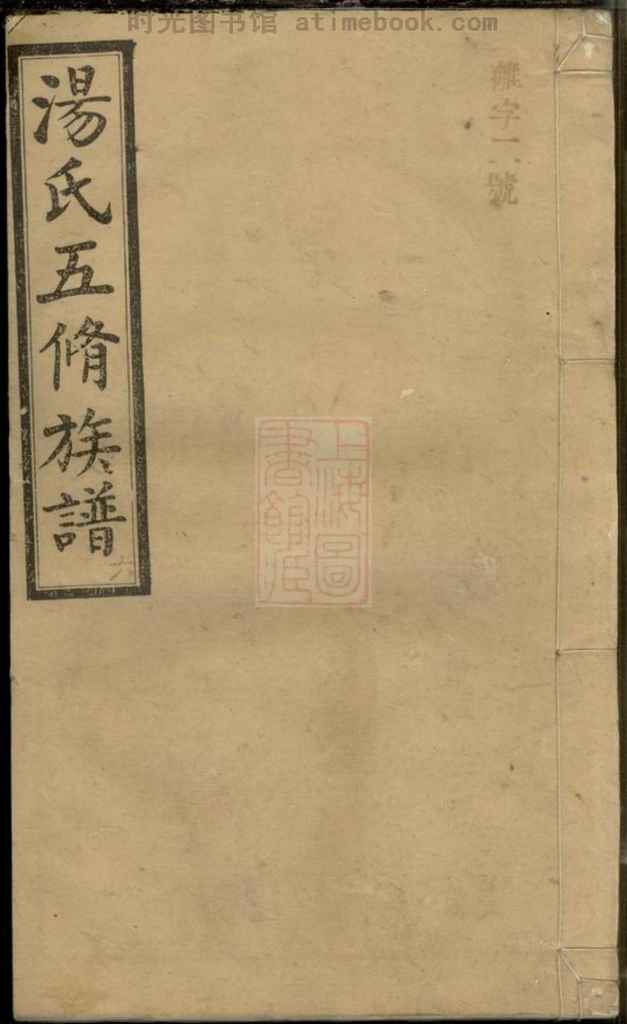 时光图书馆 atimebook.com
字二號
湯氏五脩族譜
上海圖
書館臧
六